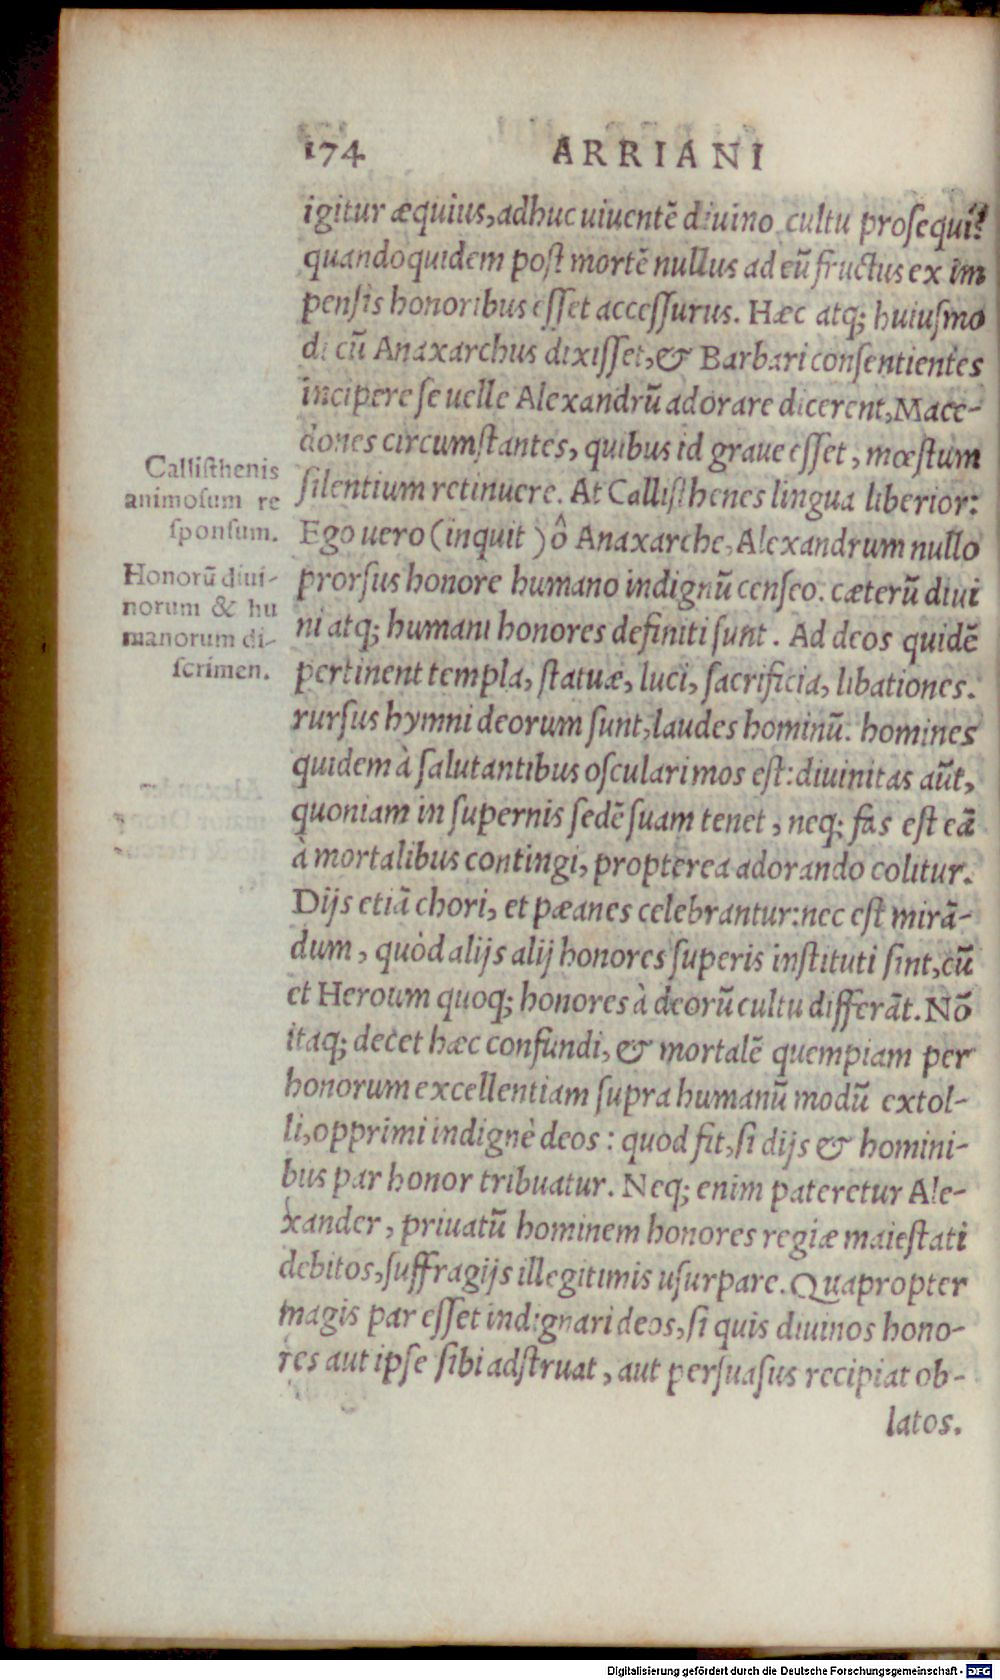 174 ARRIANI
igitur æquius, adhuc uiuentē diuino cultu prosequi?
quandoquidem post mortē nullus ad eū fructus ex im
pensis honoribus esset accessurus. Hæc atq; huiusmo
di cū Anaxarchus dixisset, & Barbari consentientes
incipere se uelle Alexandrū adorare dicerent, Mace-
dones circumstantes, quibus id graue esset, mœstum
silentium retinuere. At Callisthenes lingua liberior:
Ego uero (inquit) ô Anaxarche, Alexandrum nullo
prorsus honore humano indignū censeo. cæterū diui
ni atq; humani honores definiti sunt. Ad deos quidē
pertinent templa, statuæ, luci, sacrificia, libationes.
rursus hymni deorum sunt, laudes hominū. homines
quidem à salutantibus osculari mos est: diuinitas aūt,
quoniam in supernis sedē suam tenet, neq; fas est eā
à mortalibus contingi, propterea adorando colitur.
Dijs etiā chori, et pæanes celebrantur: nec est mirā-
dum, quòd alijs alij honores superis instituti sint, cū
et Heroum quoq; honores à deorū cultu differāt. Nō
itaq; decet hæc confundi, & mortalē quempiam per
honorum excellentiam supra humanū modū extol-
li, opprimi indignè deos: quod fit, si dijs & homini-
bus par honor tribuatur. Neq; enim pateretur Ale-
xander, priuatū hominem honores regiæ maiestati
debitos, suffragijs illegitimis usurpare. Quapropter
magis par esset indignari deos, si quis diuinos hono-
res aut ipse sibi adstruat, aut persuasus recipiat ob-
latos.
Callisthenis
animosum re
sponsum.
Honorū diui-
norum & hu
manorum di-
scrimen.
Digitalisierung gefördert durch die Deutsche Forschungsgemeinschaft - DFG